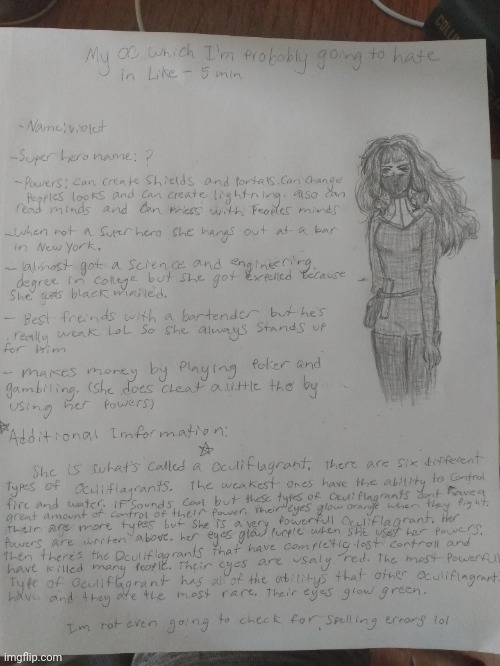 My OC which I'm probobly going to hate
in Like - 5 min
- Name: violet
- Super hero name: ?
- Powers: can create Shields and Portals. Can Change
Peoples looks and can create lightning. also can
read minds and can mess with Peoples minds
- when not a Super hero she hangs out at a bar
in New York.
- (almost got a Science and engintering
degree in college but she got expelled because
She was black mailed.
- Best freinds with a bartender but he's
really weak LoL So she always Stands up
for him
- makes money by Playing Poker and
gambiling. (she does cheat a little tho by
using her powers)
Additional Imformation:
She is what's called a Oculiflagrant. There are six different
types of Oculiflagrants. The weakest ones have the ability to control
fire and water. it sounds cool but these types of Oculiflagrants dont have a
great amount of control of their power. Their eyes glow orange when they fight.
Their are more types but she is a very powerfull Oculiflagrant. Her
Powers are writen above. her eyes glow purple when she uses her powers.
Then there's the Oculiflagrants that have completic lost controll and
have killed many people. Their eyes are usaly red. The most Powerfull
Type of Oculiflagrant has all of the abilitys that other Oculiflagrants
have and they are the most rare. Their eyes glow green.
I'm not even going to check for spelling errors lol
imgflip.com